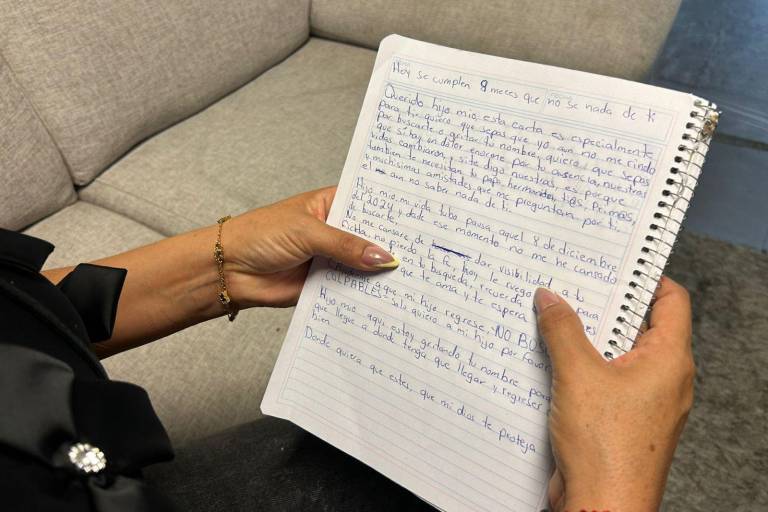 Hoy se cumplen 8 meces que no se nada de ti
Querido hijo mio, esta carta es especialmente
para ti, quiero que sepas que yo aun no me rindo
por buscarte o gritar tu nombre, quiero que sepas
que si hay un dolor enorme por tu ausencia, nuestras
vidas cambiaron, y si te digo nuestras, es por que
tambien te necesitan tu papá, hermanitos, tias, Primas,
y muchisimas amistades que me preguntan por ti.
el aun no saber nada de ti.
Hijo mio, mi vida tubo pausa, aquel 8 de diciembre
del 2024 y desde ese momento no me he cansado
de buscarte.
No me cansare de dar visibilidad a tu
ficha, no pierdo la fe, hoy le ruego para
en tu busqueda, recuerda
que te ama y te espera
a que mi hijo regrese, NO
CULPABLES- solo quiero a mi hijo por favor
Hijo mio aqui estoy gritando tu nombre para
que llegue a donde tenga que llegar y regreses
bien.
Donde quiera que estes, que mi dios te proteja